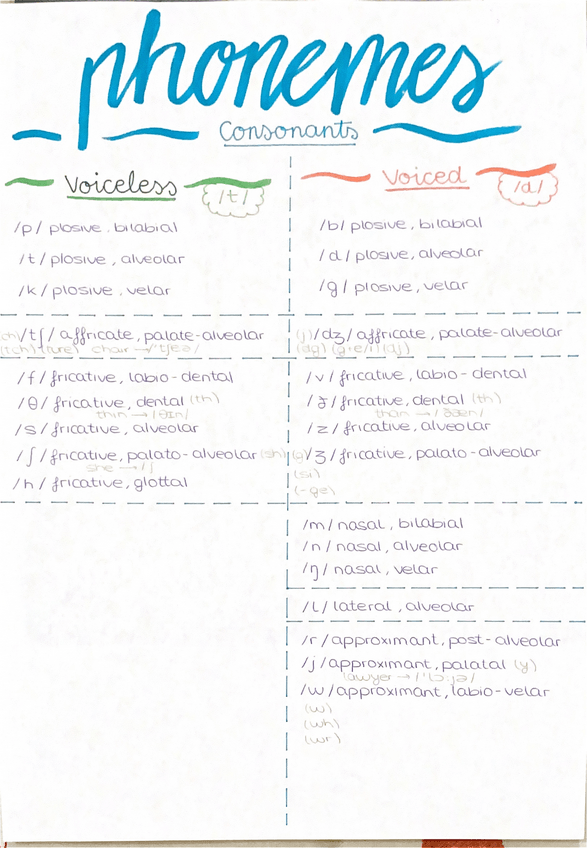 phonemes
Consonants
Voiceless /t/
/p/ plosive, bilabial
/t/ plosive, alveolar
/k/ plosive, velar
(ch) /tʃ/ affricate, palate-alveolar
(tch) (ture) chair → /'tʃeə/
/f/ fricative, labio-dental
/θ/ fricative, dental (th)
thin → /θɪn/
/s/ fricative, alveolar
/ʃ/ fricative, palato-alveolar (sh)
she → /ʃ
/h/ fricative, glottal
Voiced /d/
/b/ plosive, bilabial
/d/ plosive, alveolar
/g/ plosive, velar
(j) /dʒ/ affricate, palate-alveolar
(dg) (g+e/i) (dj)
/v/ fricative, labio-dental
/ð/ fricative, dental (th)
than → /ðæn/
/z/ fricative, alveolar
(g) /ʒ/ fricative, palato-alveolar
(si)
(-ge)
/m/ nasal, bilabial
/n/ nasal, alveolar
/ŋ/ nasal, velar
/l/ lateral, alveolar
/r/ approximant, post-alveolar
/j/ approximant, palatal (y)
lawyer → /'lɔ:jə/
/w/ approximant, labio-velar
(w)
(wh)
(wr)